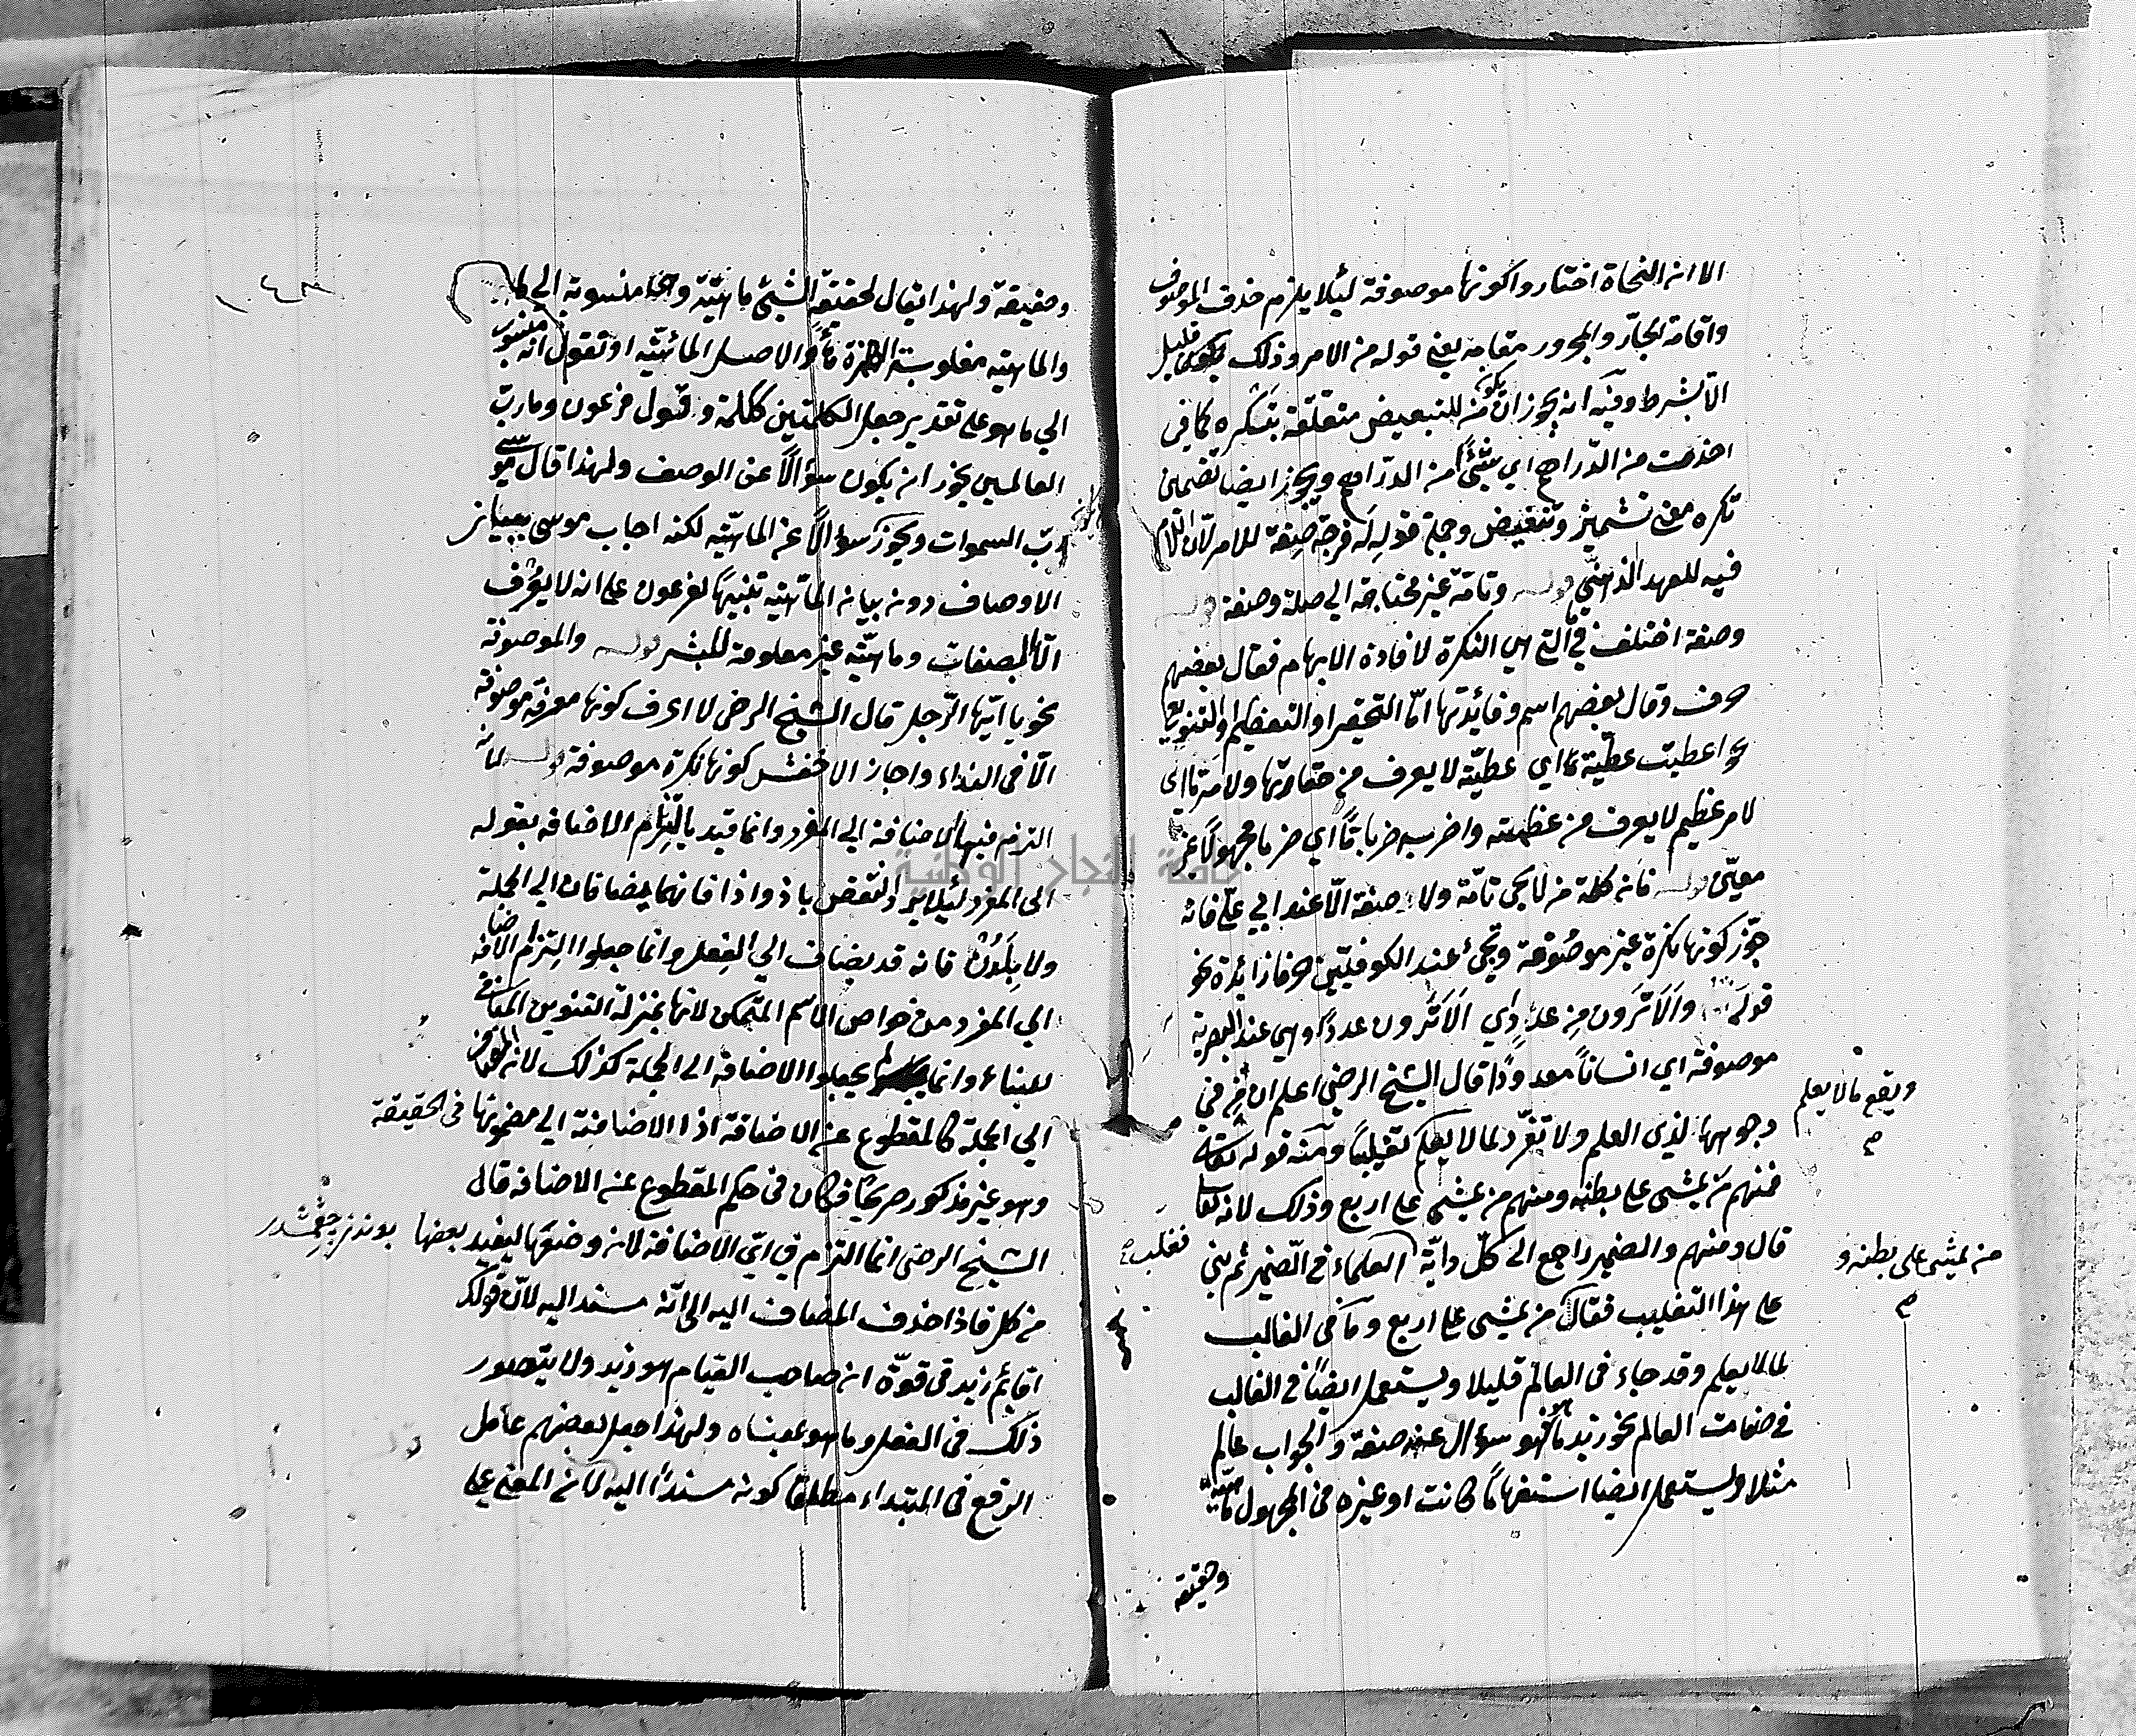 الا ان النحاة اختاروا كونها موصوفة لئلا يلزم حذف الموصوف
واقامة الجارّ والمجرور مقامه يعني قوله من الامر وذلك قليل
الّا بشرط وفيه انه يجوز ان يكون من للتبعيض متعلّقة بتكره كما في
اخذت من الدّراهم اي شيئًا من الدّراهم ويجوز ايضا تضمين
تكره معنى تشمئز وتنغيض وجملة قوله له فرجة صفة للامر لانّ اللام
فيه للعهد الذهني قوله وتامّة غير محتاجة الى صلة وصفة قوله
وصفة اختلف في ما التي تلي النكرة لافادة الابهام فقال بعضهم
حرف وقال بعضهم اسم وفائدتها امّا التحقير او التعظيم او التنويع
نحو اعطيت عطيّة ما اي عطيّة لا يعرف من حقارتها ولامر ما اي
لامر عظيم لا يعرف من عظمته واضربه ضربا مّا اي ضربا مجهولًا غير
معيّن قوله فان كلمة من لا يجي تامّة ولا صفة الّا عند ابي عليّ فانه
جوّز كونها نكرة غير موصوفة وتجئ عند الكوفيّين حرفا زائدة نحو
قوله والاثرون من عددا اي الاثرون عددًا وهي عند البصرية
موصوفة اي انسانًا معدودًا قال الشيخ الرضي اعلم ان من في
وجوهها لذي العلم ولا تفرّد لما لا يعلم تغليبًا ومنه قوله تعالى
ويقع ما لا يعلم
صح
فمنهم من يمشي على بطنه ومنهم من يمشي على اربع وذلك لانه تعالى
قال ومنهم والضمير راجع الى كلّ دابّة العلماء في الضمير ثم بنى
تغليب
من يمشي على بطنه و
صح
على هذا التغليب فقال من يمشي على اربع وما في الغالب
لما لا يعلم وقد جاء في العالم قليلا ويستعمل ايضًا في الغالب
في صفات العالم نحو زيد ما هو فهو سؤال عن صفة والجواب عالم
مثلا ويستعمل ايضا استفهامًا كانت او غيره في المجهول ماهيّته
وحقيقة
وحقيقة ولهذا يقال لحقيقة الشئ ماهيّة وهي منسوبة الى ما
والماهية مقلوبة الهمزة هاء والاصل المائيّه او تقول انه منسوب
الى ما هو على تقدير جعل الكلمتين ككلمة وقول فرعون وما ربّ
العالمين يجوز ان يكون سؤالًا عن الوصف ولهذا قال موسى
ربّ السموات ويجوز سؤالًا عن الماهيّة لكنه اجاب موسى ببيان
الاوصاف دون بيان الماهيّة تنبيهًا لفرعون على انه لا يعرف
الّا بالصفات وماهيّته غير معلومة للبشر قوله والموصوفة
نحو يا ايّها الرّجل قال الشيخ الرضي لا اعرف كونها معرفة موصوفة
الّا في النداء واجاز الاخفش كونها نكرة موصوفة قوله لانّه
التزم فيها الاضافة الى المفرد وانما قيد بالتزام الاضافه بقوله
الى المفرد لئلا يرد النقض باذ واذا فانهما يضافان الى الجملة
ولا بلدن فانه قد يضاف الى الفعل وانما جعلوا التزام الاضافة
الى المفرد من خواص الاسم المتمكن لانها بمنزلة التنوين المنافي
للبناء وانما لم يجعلوا الاضافة الى الجملة كذلك لانه المضاف
الى الجملة كالمقطوع عن الاضافة اذ الاضافة الى مضمونها في الحقيقة
وهو غير مذكور صريحًا فكان في حكم المقطوع عن الاضافه قال
الشيخ الرضي انما التزم في ايّ الاضافة لانه وضعها ليفيد بعضها
من كل فاذا حذف المضاف اليه الى انّه مسند اليه لانّ قولك
اقائم زيد في قوّة ان صاحب القيام هو زيد ولا يتصور
ذلك في الفعل وما هو بمعناه ولهذا جعل بعضهم عامل
الرفع في المبتداء مطلقا كونه مسندًا اليه لان المعنى على
جامعة النجاح الوطنية